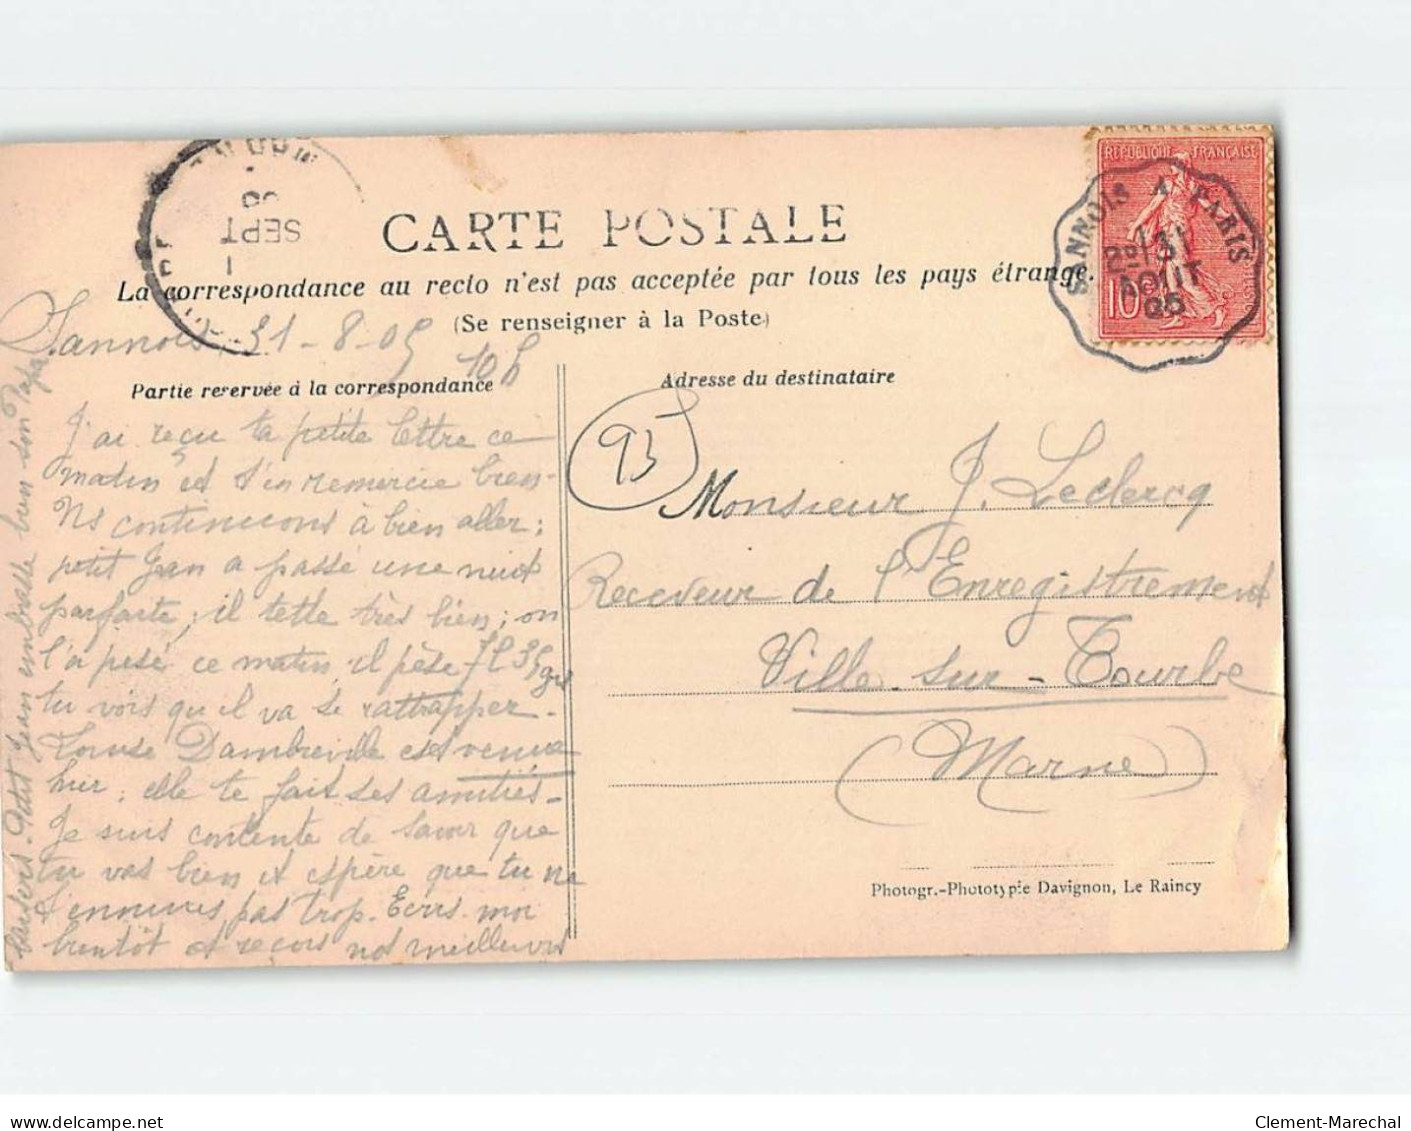 CARTE POSTALE
La correspondance au recto n'est pas acceptée par tous les pays étrange.
(Se renseigner à la Poste)
RÉPUBLIQUE FRANÇAISE
10
SANNOIS A PARIS
2º 31
AOUT
05
SEPT
Sannois, 31-8-05
10h
Partie reservée à la correspondance
J'ai reçu ta petite lettre ce
matin et t'en remercie bien-
Ns continuons à bien aller;
petit Jean a passé une nuit
parfaite; il tette très bien; on
l'a pesé ce matin, il pèse
tu vois qu'il va se rattrapper-
Louise Dambreville est venue
hier; elle te fait ses amitiés-
Je suis contente de savoir que
tu vas bien et espère que tu ne
t'ennuies pas trop. Ecris-moi
bientôt et reçois nos meilleurs
baisers. Petit Jean embrasse bien son Papa
Adresse du destinataire
95
Monsieur J. Leclercq
Receveur de l'Enregistrement
Ville-sur-Tourbe
(Marne)
Photogr.-Phototypie Davignon, Le Raincy
www.delcampe.net
Clement-Marechal